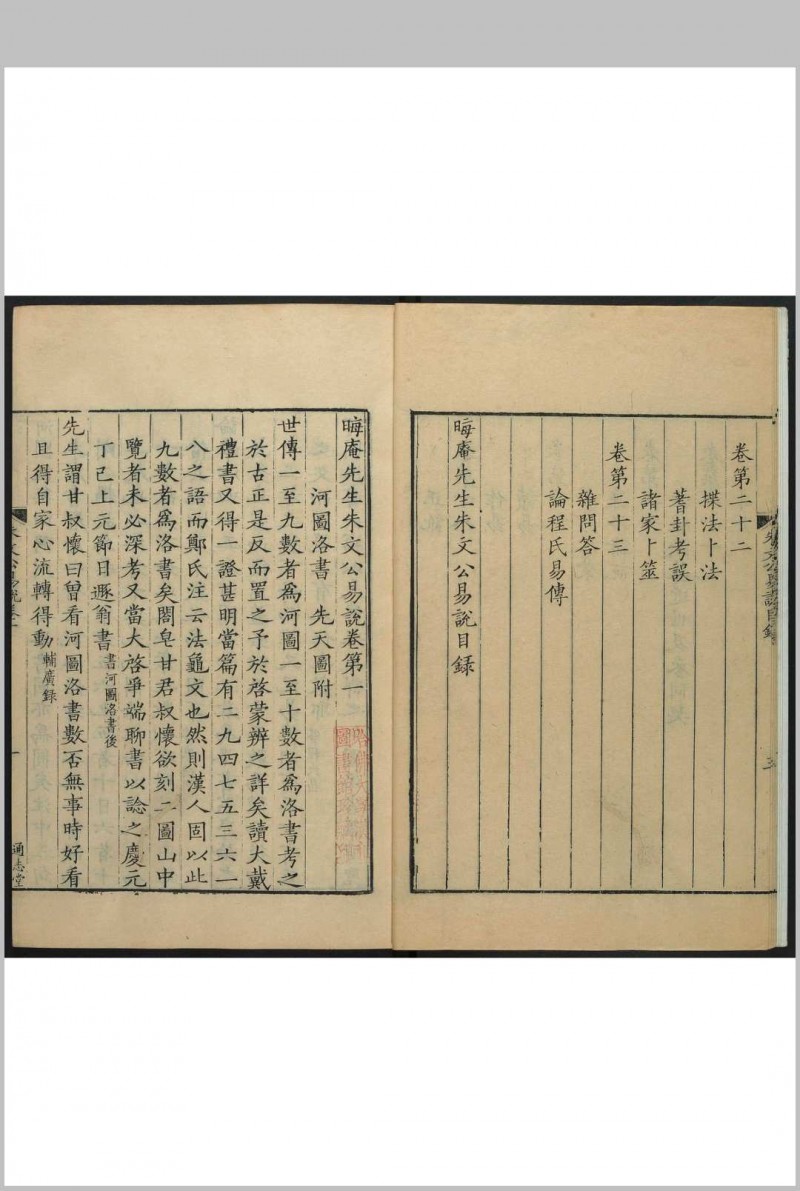 卷第二十二
揲法卜法
蓍卦考誤
諸家卜筮
卷第二十三
雜問答
論程氏易傳
晦庵先生朱文公易說目録
晦庵先生朱文公易說卷第一
河圖洛書 先天圖附
世傳一至九數者爲河圖一至十數者爲洛書考之
於古正是反而置之予於啓蒙辨之詳矣讀大戴
禮書又得一證甚明當篇有二九四七五三六一
八之語而鄭氏注云法龜文也然則漢人固以此
九數者爲洛書矣閤皂甘君叔懷欲刻二圖山中
覽者未必深考又當大啓爭端聊書以諗之慶元
丁巳上元節日遯翁書 書河圖洛書後
先生謂甘叔懷曰曾看河圖洛書數否無事時好看
且得自家心流轉得動 輔廣録
通志堂